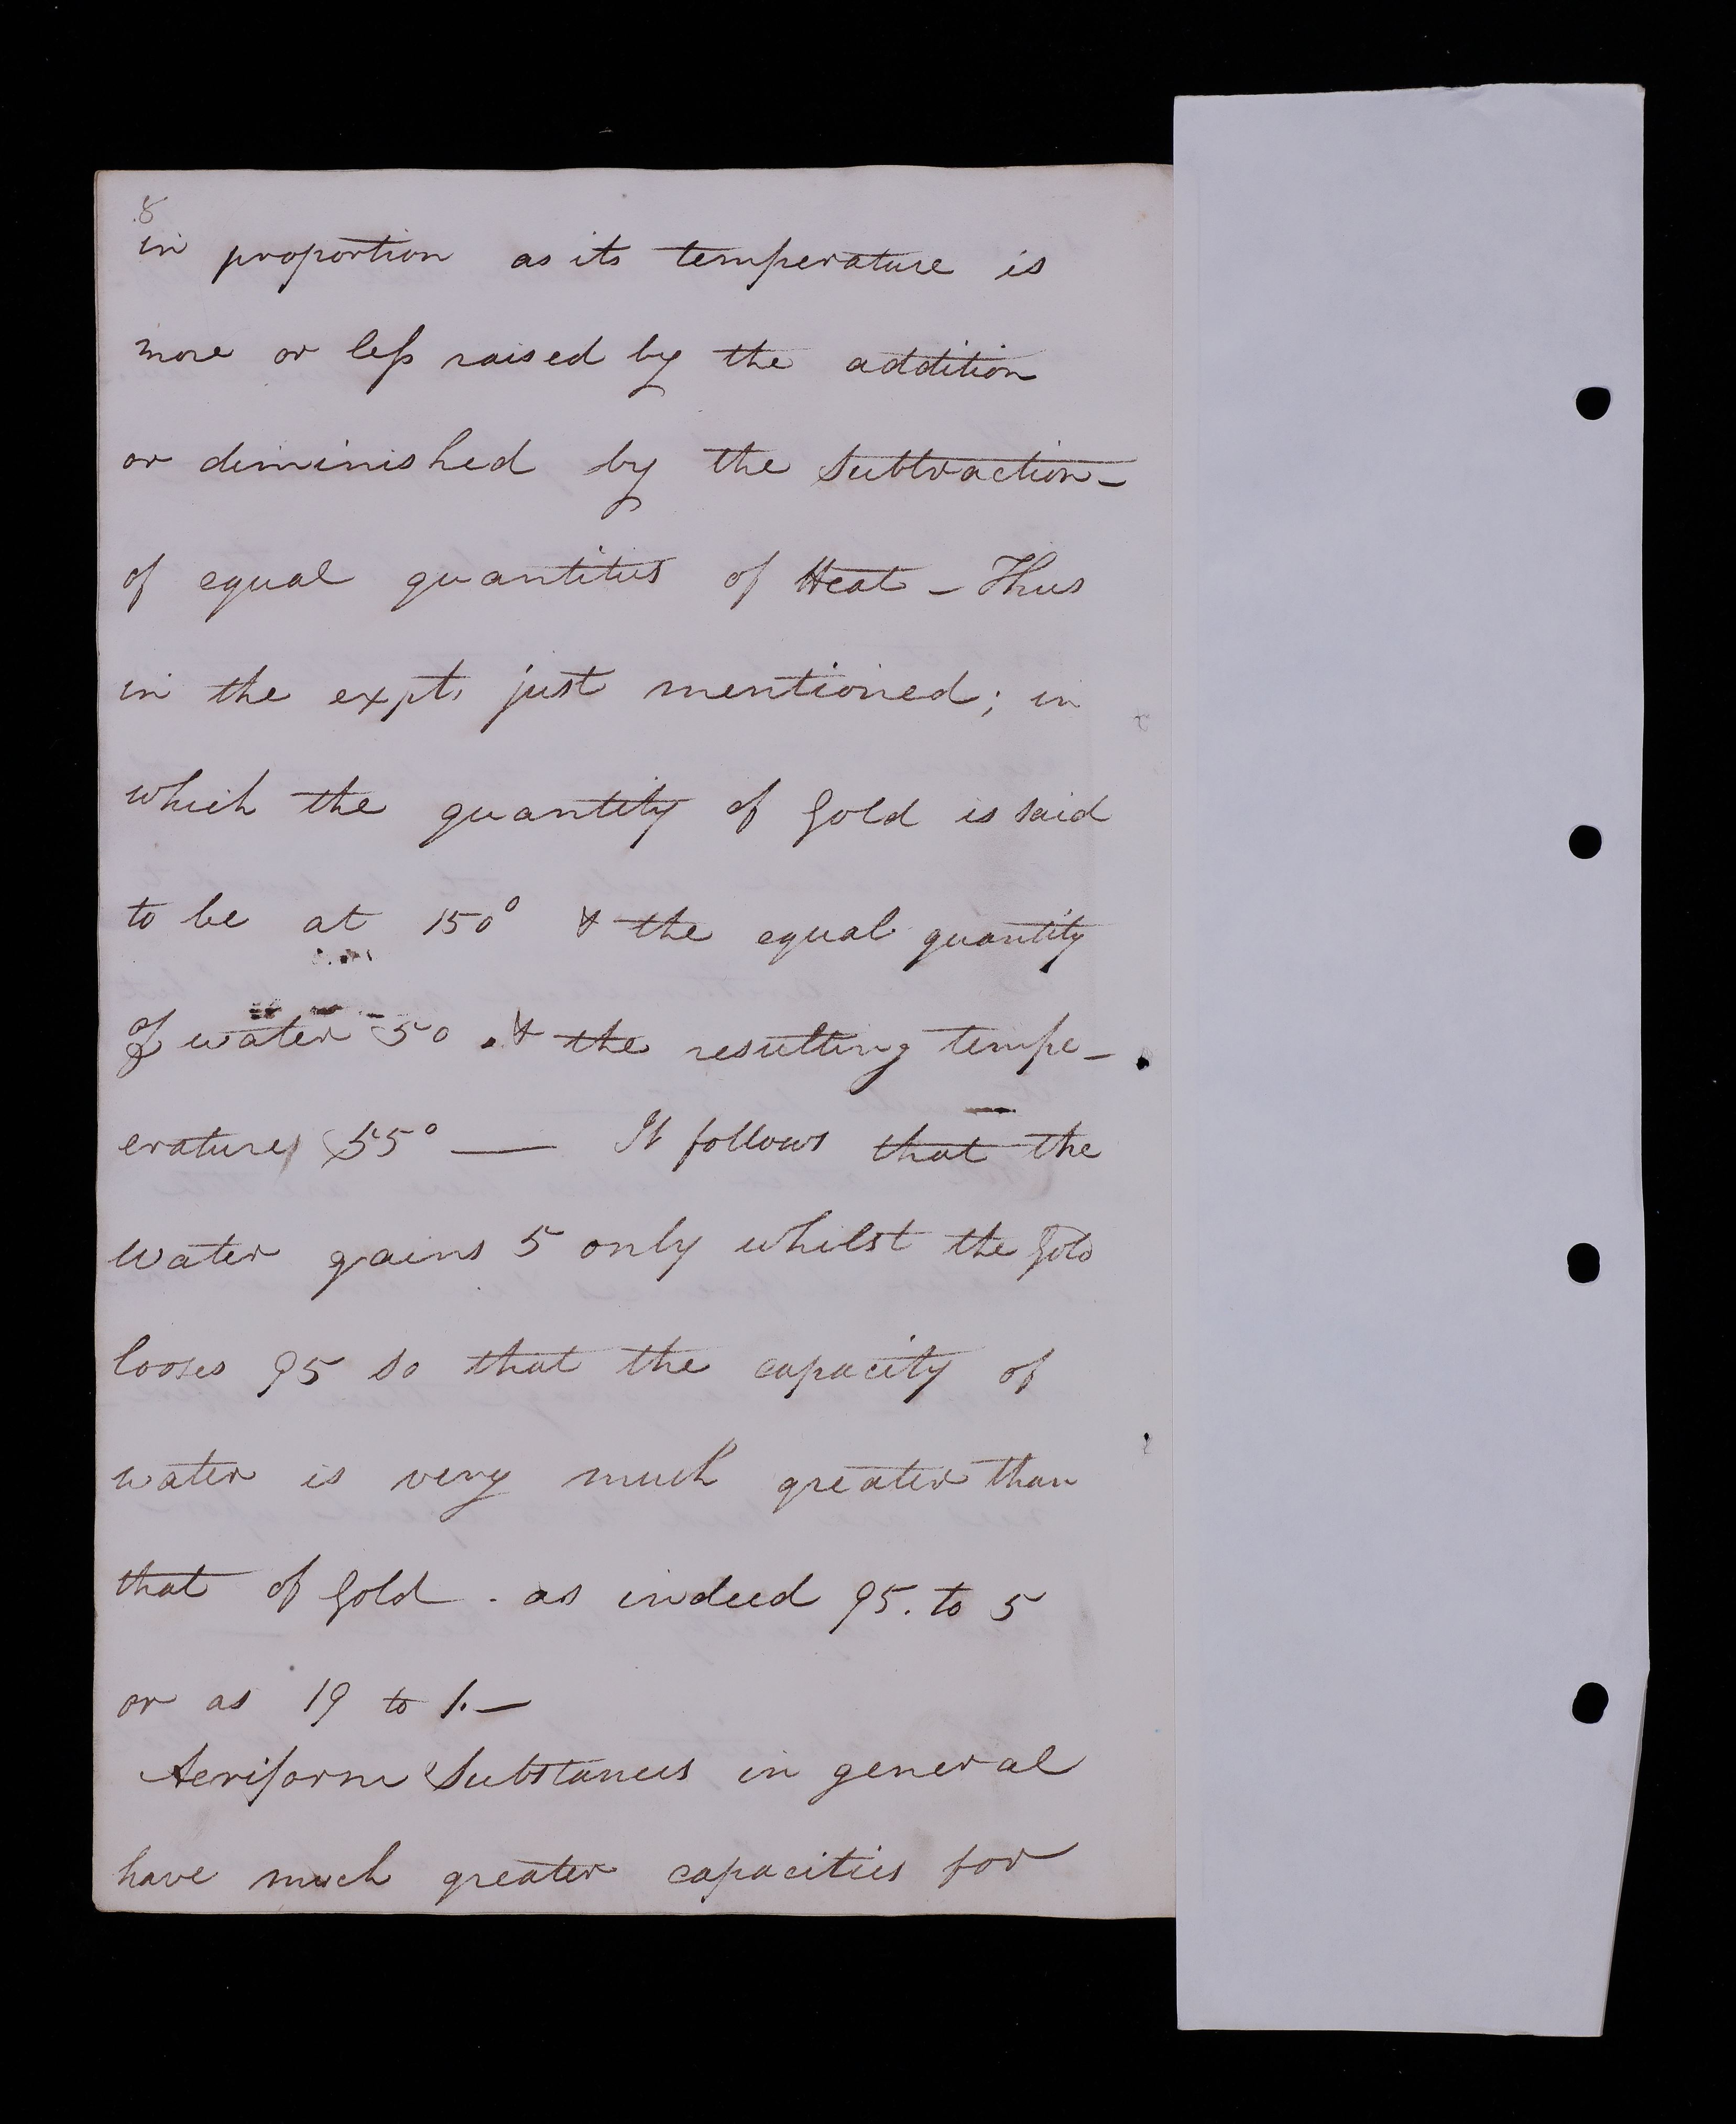 8
in proportion as its temperature is
more or less raised by the addition
or diminished by the Subtraction -
of equal quantities of Heat - Thus
in the expts just mentioned; in
which the quantity of Gold is said
to be at 150° & the equal quantity
of water 50 . & the resulting tempe-
erature 55° — It follows that the
water gains 5 only whilst the Gold
looses 95 so that the capacity of
water is very much greater than
that of Gold . as indeed 95. to 5
or as 19 to 1. —
Aeriform Substances in general
have much greater capacities for